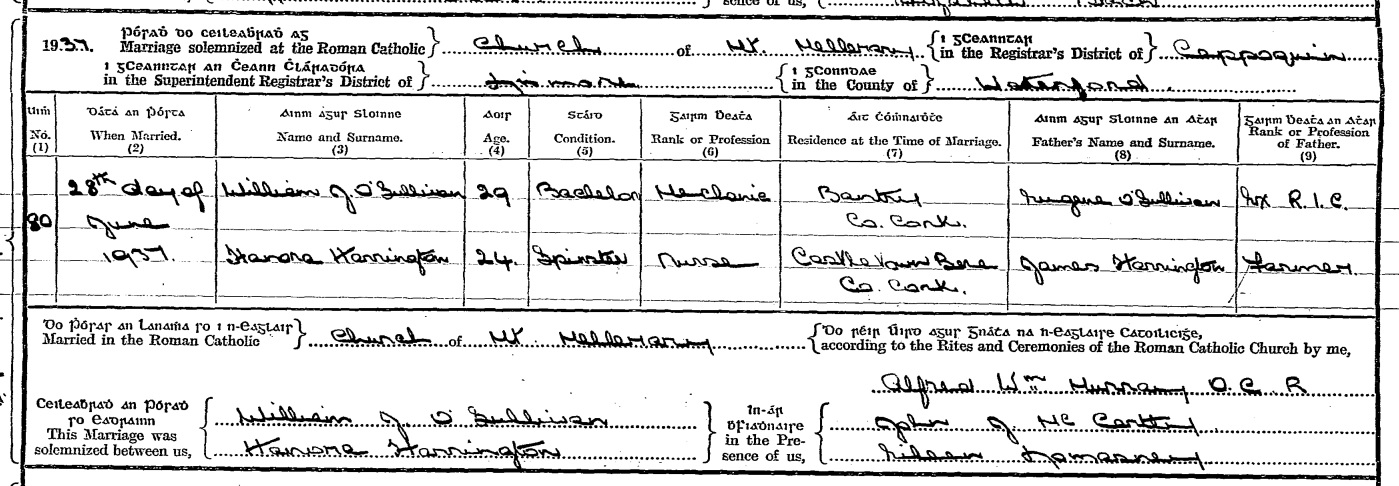 sence of us,
1937. Pórad do ceileabrad ag
Marriage solemnized at the Roman Catholic Church of Mt. Melleray
i gCeanntar in the Registrar's District of Cappoquin
i gCeanntar an Ceann Cláradóra
in the Superintendent Registrar's District of Lismore
i gConndae in the County of Waterford.
Uim Dáta an Pórta Ainm agus Sloinne Aois Stáid Gairm Beata Áit Cómnaidte Ainm agus Sloinne an Atar Gairm Beata an Atar
No. When Married. Name and Surname. Age. Condition. Rank or Profession Residence at the Time of Marriage. Father's Name and Surname. Rank or Profession of Father.
(1) (2) (3) (4) (5) (6) (7) (8) (9)
28th day of William J. O'Sullivan 29 Bachelor Mechanic Bantry Eugene O'Sullivan Ex R.I.C.
80 June Co. Cork.
1937. Hanora Harrington 24. Spinster Nurse Castletown Bere James Harrington Farmer
Co. Cork.
Do Pórad an Lanama so i n-eaglais
Married in the Roman Catholic Church of Mt. Melleray
Do réir Úird agus Gnáta na n-Eaglaise Catoilicige,
according to the Rites and Ceremonies of the Roman Catholic Church by me,
Alfred Wm Murray O.C.R
Ceileabrad an Pórad
so eadrainn
This Marriage was
solemnized between us,
William J. O'Sullivan
Hanora Harrington
In-ár
bfiadnaire
in the Pre-
sence of us,
John J McCarthy
Eileen Lomasney